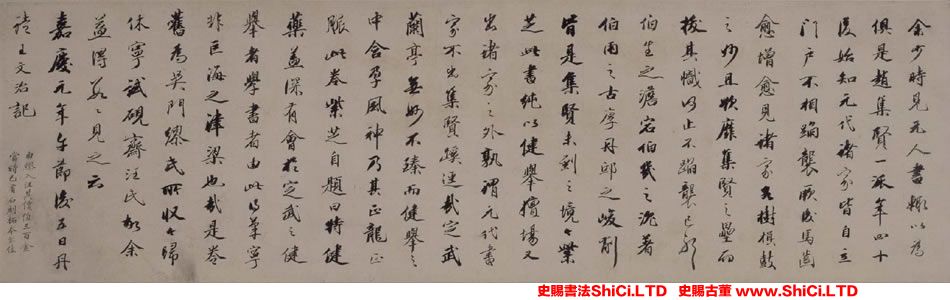 余少時見元人書輒以為
俱是趙集賢一派年四十
後始知元代諸家皆自立
門戶不相蹈襲厥後馬齒
愈增愈見諸家各樹旗鼓
之妙且欲靡集賢之壘而
拔其幟以止不蹈襲已即
伯生之澹宕伯幾之沉著
伯雨之古淳丹邱之峻削
皆是集賢未到之境紫
芝此書純以健舉擅場又
出諸家之外孰謂元代書
家不出集賢蹊逕哉定武
蘭亭無妙不臻而健舉之
中含孕風神乃其正龍正
脈此卷紫芝自題曰特健
藥蓋深有會於定武之健
舉者學書者由此得單寧
非巨海之津梁也哉是卷
舊為吳門繆氏所收今歸
休寧試硯齋汪氏故余
益得數數見之云
嘉慶元年午節後五日丹
徒王文治記
史賜書法ShiCi.LTD 史賜古董 www.ShiCi.LTD